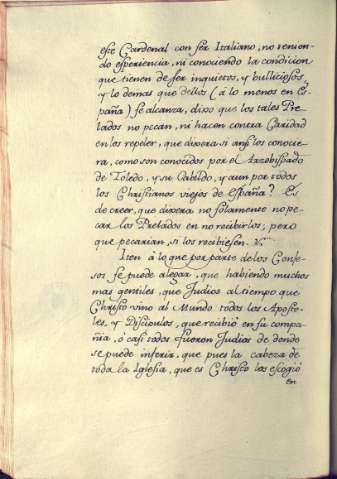 este Cardenal con ser Italiano, no tenien-
do esperiencia, ni conociendo la condicion
que tienen de ser inquietos, y bulliciosos
y lo demas que dellos (à lo menos en Es-
paña) se alcanza, dixo que los tales Pre-
lados no pecan, ni hacen contra Caridad
en los repeler, que dixera si ansi los conocie-
ra, como son conocidos por el Arzobispado
de Toledo, y su Cabildo, y aun por todos
los Christianos viejos de España? Es
de creer, que dixera no solamente no pe-
car los Prelados en no recibirlos; pero
que pecarian, si los recibiesen.
Iten à lo que por parte de los Confe-
sos se puede alegar, que habiendo muchos
mas gentiles, que Judios al tiempo que
Christo vino al Mundo todos los Aposto-
les, y Discipulos, que recibió en su compa-
ñia, ò casi todos fueron Judios de donde
se puede inferir, que pues la cabeza de
toda la Iglesia, que es Christo los escogió
en